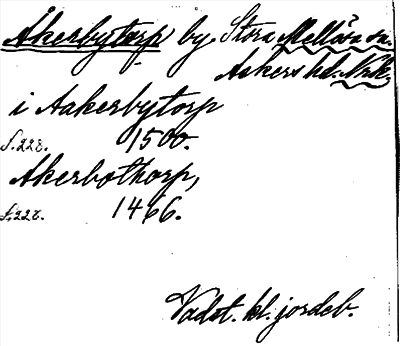 Åkerbytorp by Stora Mellösa sn.
Askers hd. Nrk.
i Aakerbytorp
f. 228. 1500.
Akerbothorp,
f. 228. 1466.
Vadst. kl. jordeb.